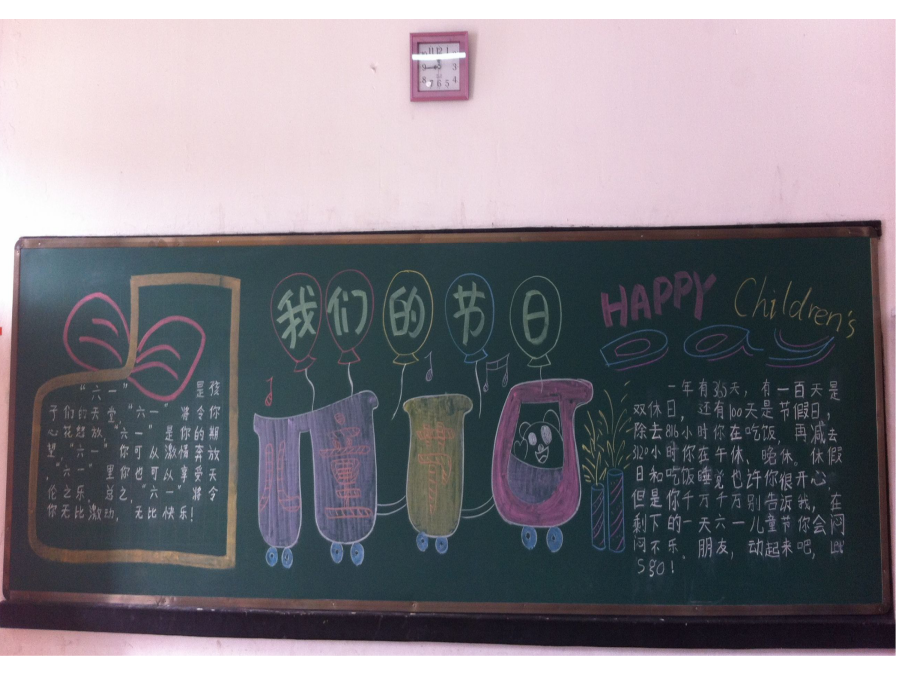 我们的节日
HAPPY Children's
Day
儿童节日
"六一" 是孩
子们的天堂,"六一"将令你
心花怒放,"六一"是你的期
望,"六一"可从激情奔放
,"六一"里你也可从享受天
伦之乐,总之,"六一"将令
你无比激动,无比快乐!
一年有365天,有一百天是
双休日,还有100天是节假日,
除去816小时你在吃饭,再减去
3120小时你在午休、晚休。休假
日和吃饭睡觉也许你很开心
但是你千万千万别告诉我,在
剩下的一天六一儿童节你会闷
闷不乐。朋友,动起来吧,
SGO!